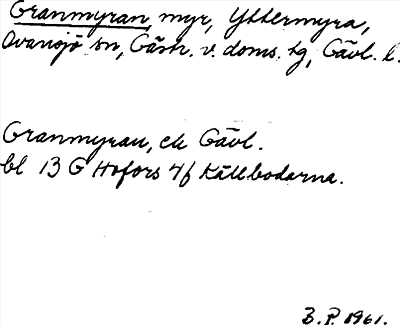 Granmyran, myr, Yttermyra,
Ovansjö sn, Gästr. v. doms. tg, Gävl. l.
Granmyran, ek Gävl.
bl 13 G Hofors 4f Källbodarna.
B. P. 1961.